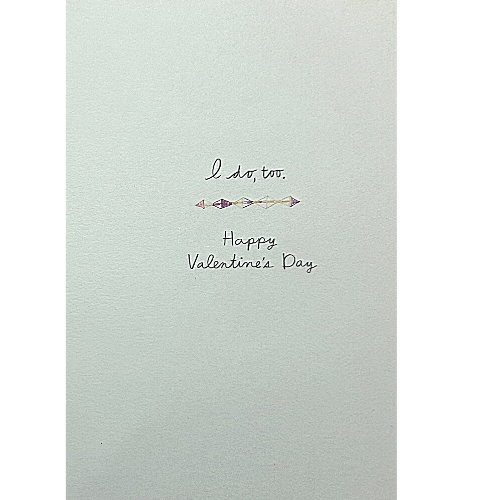 I do, too.
Happy
Valentine's Day